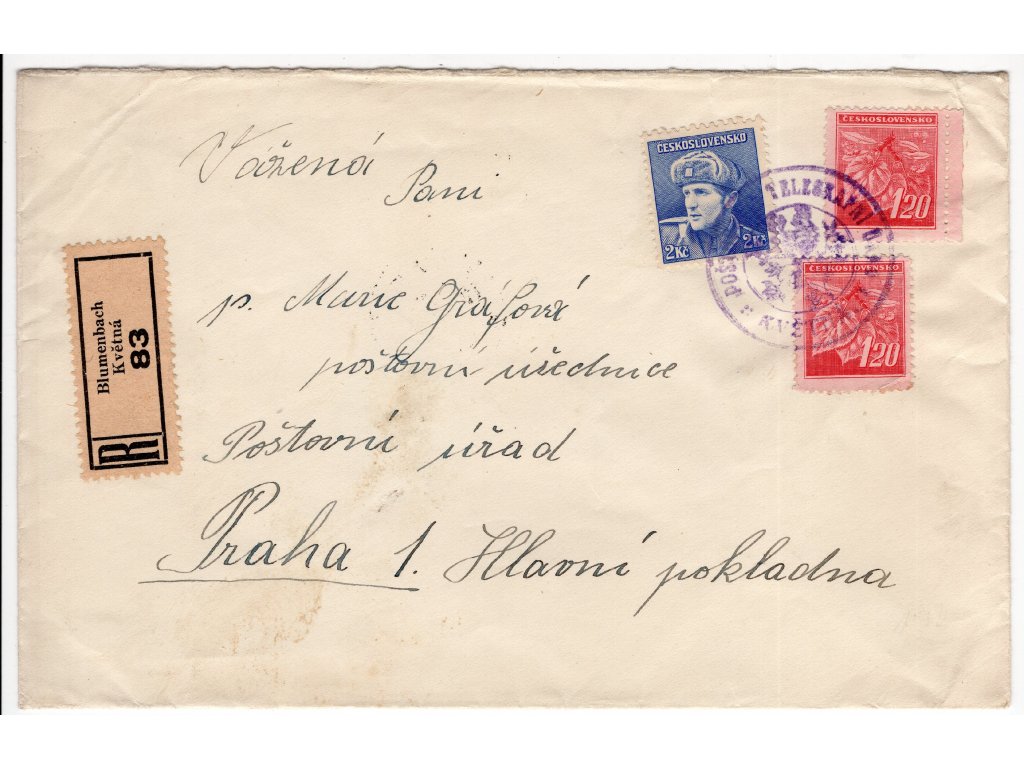 Vážená
Paní
p. Marie Gráfová
poštovní úřednice
Poštovní úřad
Praha 1. Hlavní pokladna
Blumenbach
Květná
83
R
ČESKOSLOVENSKO
2 Kč 2 Kč
ČESKOSLOVENSKO
1.20
ČESKOSLOVENSKO
1.20
TELEGRAFNÍ